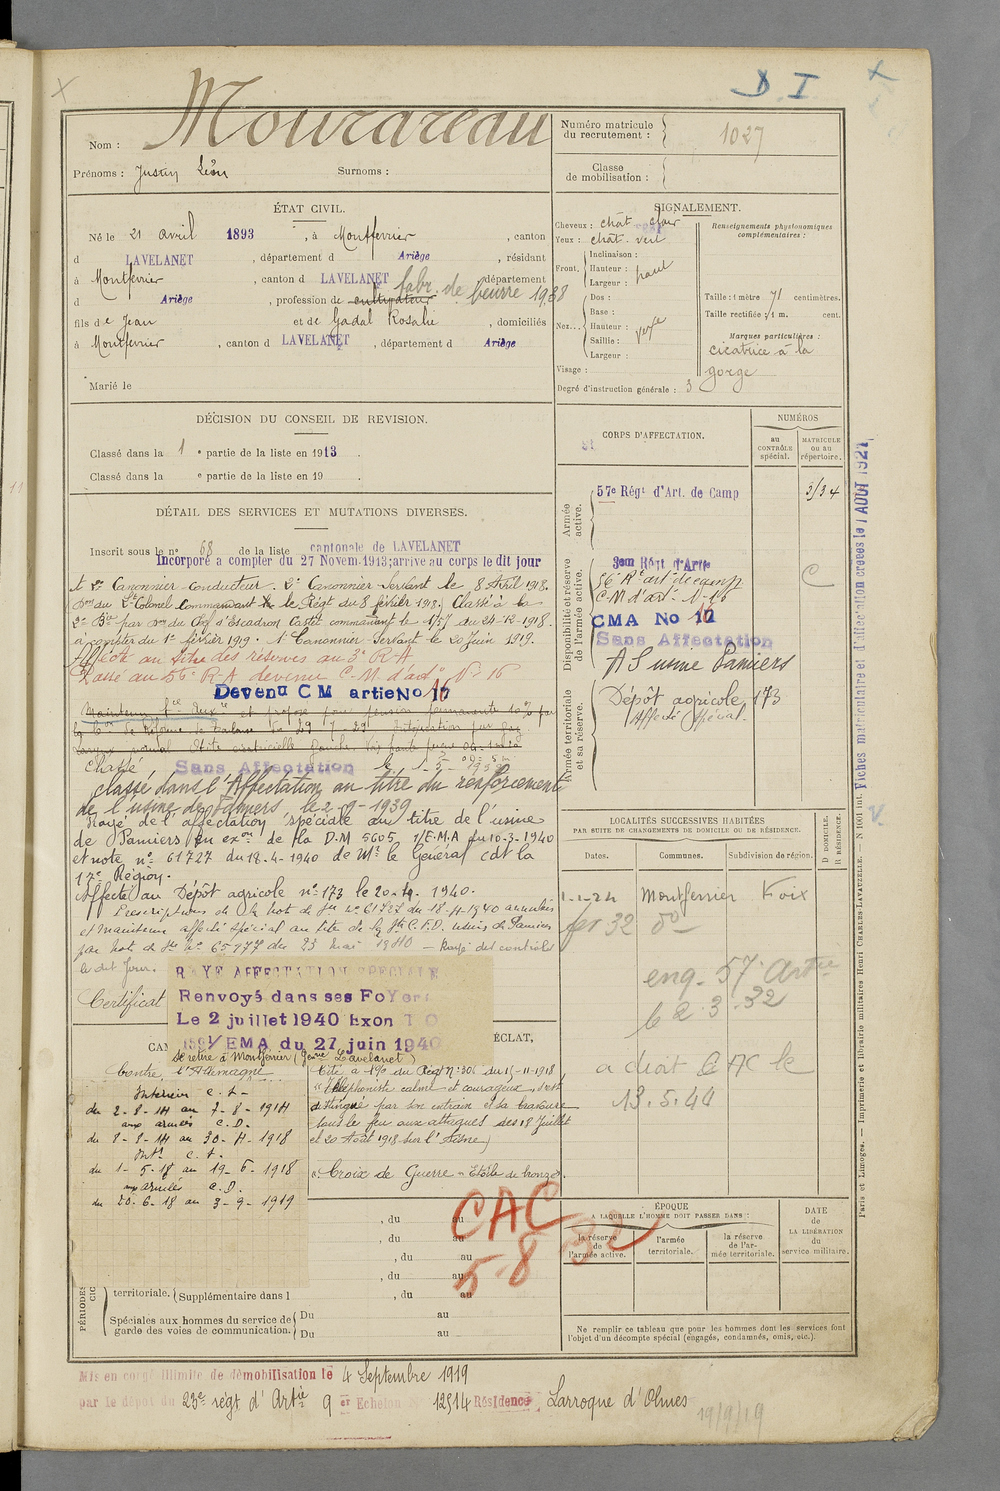 D I
Nom : Mourareau
Prénoms : Justin Léon Surnoms :
Numéro matricule du recrutement : 1027
Classe de mobilisation :
ÉTAT CIVIL.
Né le 21 avril 1893, à Montferrier, canton
d LAVELANET, département d Ariège, résidant
à Montferrier, canton d LAVELANET, département
d Ariège, profession de cultivateur fabr. de beurre 1938
fils de Jean et de Gadal Rosalie, domiciliés
à Montferrier, canton d LAVELANET, département d Ariège
Marié le
SIGNALEMENT.
Cheveux : chât clair
Yeux : chât. vert
Front. Inclinaison :
Hauteur : haut
Largeur :
Nez. Dos :
Base :
Hauteur :
Saillie :
Largeur :
Visage :
Degré d'instruction générale : 3
Renseignements physionomiques complémentaires :
Taille : 1 mètre 71 centimètres.
Taille rectifiée : 1 m. cent.
Marques particulières :
cicatrice à la
gorge
DÉCISION DU CONSEIL DE REVISION.
Classé dans la 1 e partie de la liste en 1913
Classé dans la e partie de la liste en 19
DÉTAIL DES SERVICES ET MUTATIONS DIVERSES.
Inscrit sous le n° 68 de la liste cantonale de LAVELANET
Incorporé à compter du 27 Novem. 1913; arrivé au corps le dit jour
et 2e Canonnier conducteur. 2e Canonnier Servant le 8 Avril 1918.
du L-Colonel Commandant le Régt du 8 février 1918. Classé à la
2e Bie par du Chef d'Escadron Castet commandant le 1/57 du 24-12-1918.
à compter du 1er février 1919. 1er Canonnier-Servant le 20 Juin 1919.
Affecté au titre des réserves au 3e R.A
Passé au 56e R.A devenu C.M. d'art N° 16
Devenu C M artie No 16
Classé Sans Affectation le 1-5-
classé dans l'Affectation au titre du renforcement
de l'usine de Pamiers le 2-9-1939
Rayé de l'affectation spéciale au titre de l'usine
de Pamiers en exon de la D.M 5605 1/E.M.A du 10-3-1940
et note n° 61727 du 18-4-1940 de Mr le Général cdt la
17e Région.
Affecté au Dépôt agricole n° 173 le 20-4-1940.
Prescriptions de la not de n° 61727 du 18-4-1940 annulées
et maintenu affecté spécial au titre de la usines de Pamiers
par not de n° 65777 du 23 mai 1940 — Rayé des contrôles
le dit jour.
Certificat
RAYE AFFECTATION SPECIALE
Renvoyé dans ses Foyers
Le 2 juillet 1940 Exon T O
1591/EMA du 27 juin 1940
Se retire à Montferrier (Lavelanet)
CAM
ÉCLAT,
Contre l'Allemagne
Intérieur C.S.
du 2-8-14 au 7-8-1914
aux armées C.D.
du 8-8-14 au 30-4-1918
Intr C.S.
du 1-5-18 au 19-6-1918
aux armées C.D.
du 20-6-18 au 3-9-1919
Cité à l'o du Régt N° 306 du 15-11-1918
"Téléphoniste calme et courageux, s'est
distingué par son entrain et sa bravoure
sous le feu aux attaques des 18 Juillet
et 20 Août 1918 sur l'Aisne"
"Croix de Guerre" Etoile de bronze.
, du au
, du au
, du au
, du au
PÉRIODES
territoriale. Supplémentaire dans l , du au
Spéciales aux hommes du service de garde des voies de communication. Du au
Du au
CAC
5-8-32
CORPS D'AFFECTATION.
NUMÉROS
au CONTRÔLE spécial.
MATRICULE ou au répertoire.
Armée active.
57e Régt d'Art. de Camp 3134
Disponibilité et réserve de l'armée active.
3em Régt d'Artie
56e Rt art de camp C
C.M d'art. N° 16
CMA No 16
Sans Affectation
A S usine Pamiers
Armée territoriale et sa réserve.
Dépôt agricole 173
Affecté spécial.
LOCALITÉS SUCCESSIVES HABITÉES
PAR SUITE DE CHANGEMENTS DE DOMICILE OU DE RÉSIDENCE.
Dates. Communes. Subdivision de région. D DOMICILE. R RÉSIDENCE.
1-1-24 Montferrier Foix
fer 32 do
eng. 57e Artie
le 2.3.32
a droit CAC le
13.5.44
ÉPOQUE
A LAQUELLE L'HOMME DOIT PASSER DANS :
la réserve de l'armée active.
l'armée territoriale.
la réserve de l'armée territoriale.
DATE de LA LIBÉRATION du service militaire.
Ne remplir ce tableau que pour les hommes dont les services font
l'objet d'un décompte spécial (engagés, condamnés, omis, etc.).
Fiches matriculaire et d'affectation créées le 1 AOUT 1927
Paris et Limoges. — Imprimerie et librairie militaires Henri CHARLES-LAVAUZELLE. — N 1001 int.
Mis en congé illimité de démobilisation le 4 Septembre 1919
par le dépôt du 23e régt d'Artie 9 er Echelon N° 12514 Résidence Larroque d'Olmes
19/9/19